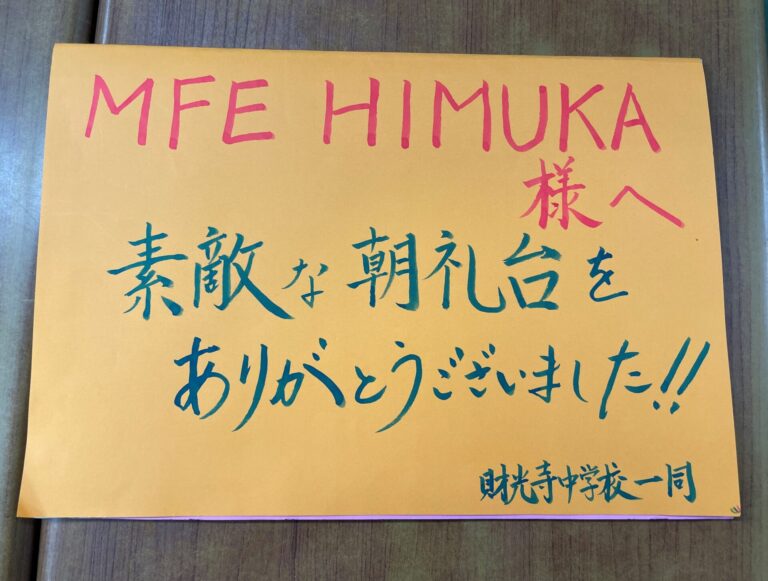 MFE HIMUKA
様へ
素敵な朝礼台を
ありがとうございました!!
財光寺中学校一同